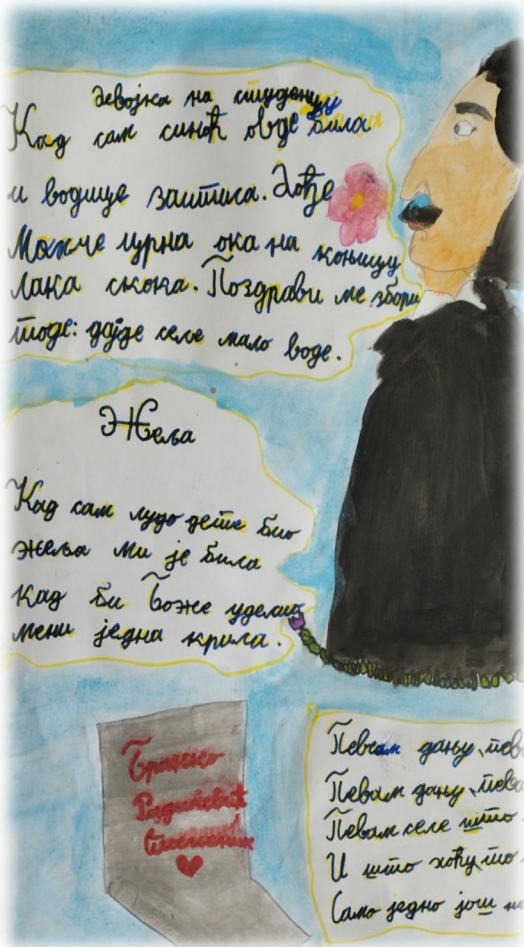 Девојка на студенцу
Кад сам синоћ овде била
и водице заитила. Дође
Момче црна ока на коњицу
лака скока. Поздрави ме збори
тоде: дајде селе мало воде.
Жеља
Кад сам лудо дете био
жеља ми је била
Кад би Боже уделио
мени једна крила.
Бранко
Радичевић
Певам дању, пева
Певам дању, пева
Певам селе што
И што хоћу то
Само једно још не